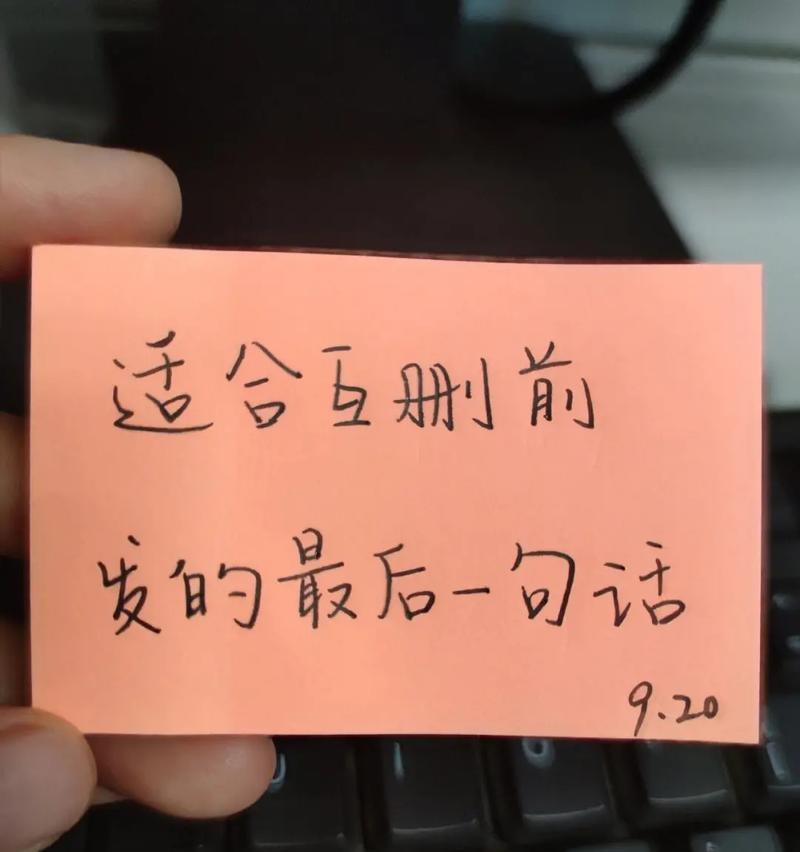 适合互删前
发的最后一句话
9.20